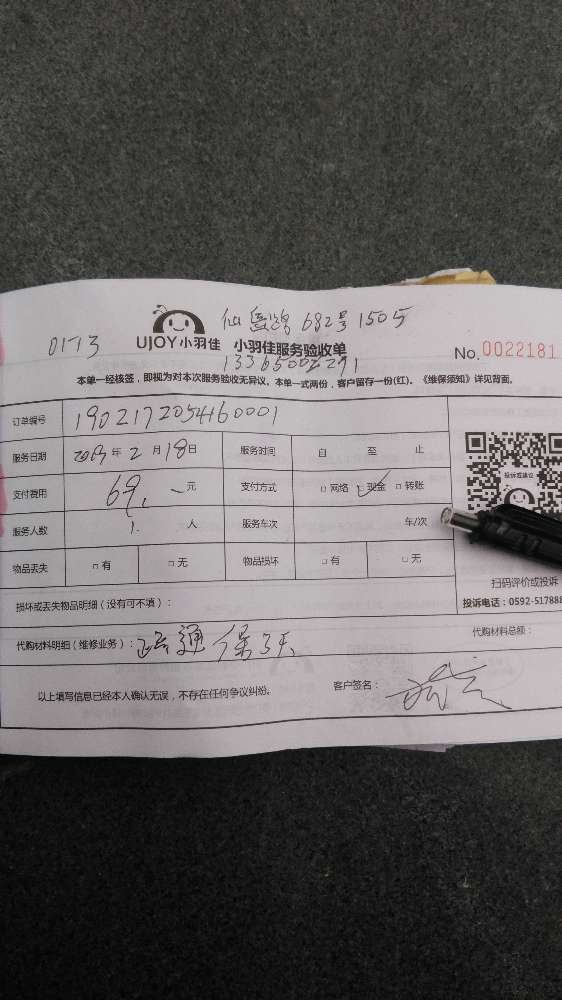 仙岳路682号1505
01173
UJOY小羽佳 小羽佳服务验收单
No.0022181
13365002291
本单一经核签，即视为对本次服务验收无异议。本单一式两份，客户留存一份(红)。《维保须知》详见背面。
订单编号 1902172054160001
服务日期 2019年2月18日 服务时间 自 至 止
支付费用 69.一元 支付方式 □网络 ☑现金 □转账
服务人数 1.人 服务车次 车/次
物品丢失 □有 □无 物品损坏 □有 □无
投诉或建议
扫码评价或投诉
投诉电话：0592-517888
损坏或丢失物品明细（没有可不填）：
代购材料明细（维修业务）：疏通保3天 代购材料总额：
以上填写信息已经本人确认无误，不存在任何争议纠纷。 客户签名：